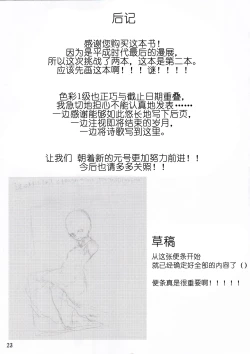 后记
感谢您购买这本书!
因为是平成时代最后的漫展,
所以这次挑战了两本, 这本是第二本。
应该先画这本啊!!! 谜!!!!
色彩1级也正巧与截止日期重叠,
我急切地担心不能认真地发表……
一边感谢能够如此悠长地写下后页,
一边注视即将结束的岁月,
一边将诗歌写到这里。
让我们 朝着新的元号更加努力前进!!
今后也请多多关照!!
草稿
从这张便条开始
就已经确定好全部的内容了 ()
便条真是很重要啊!!!!!
23